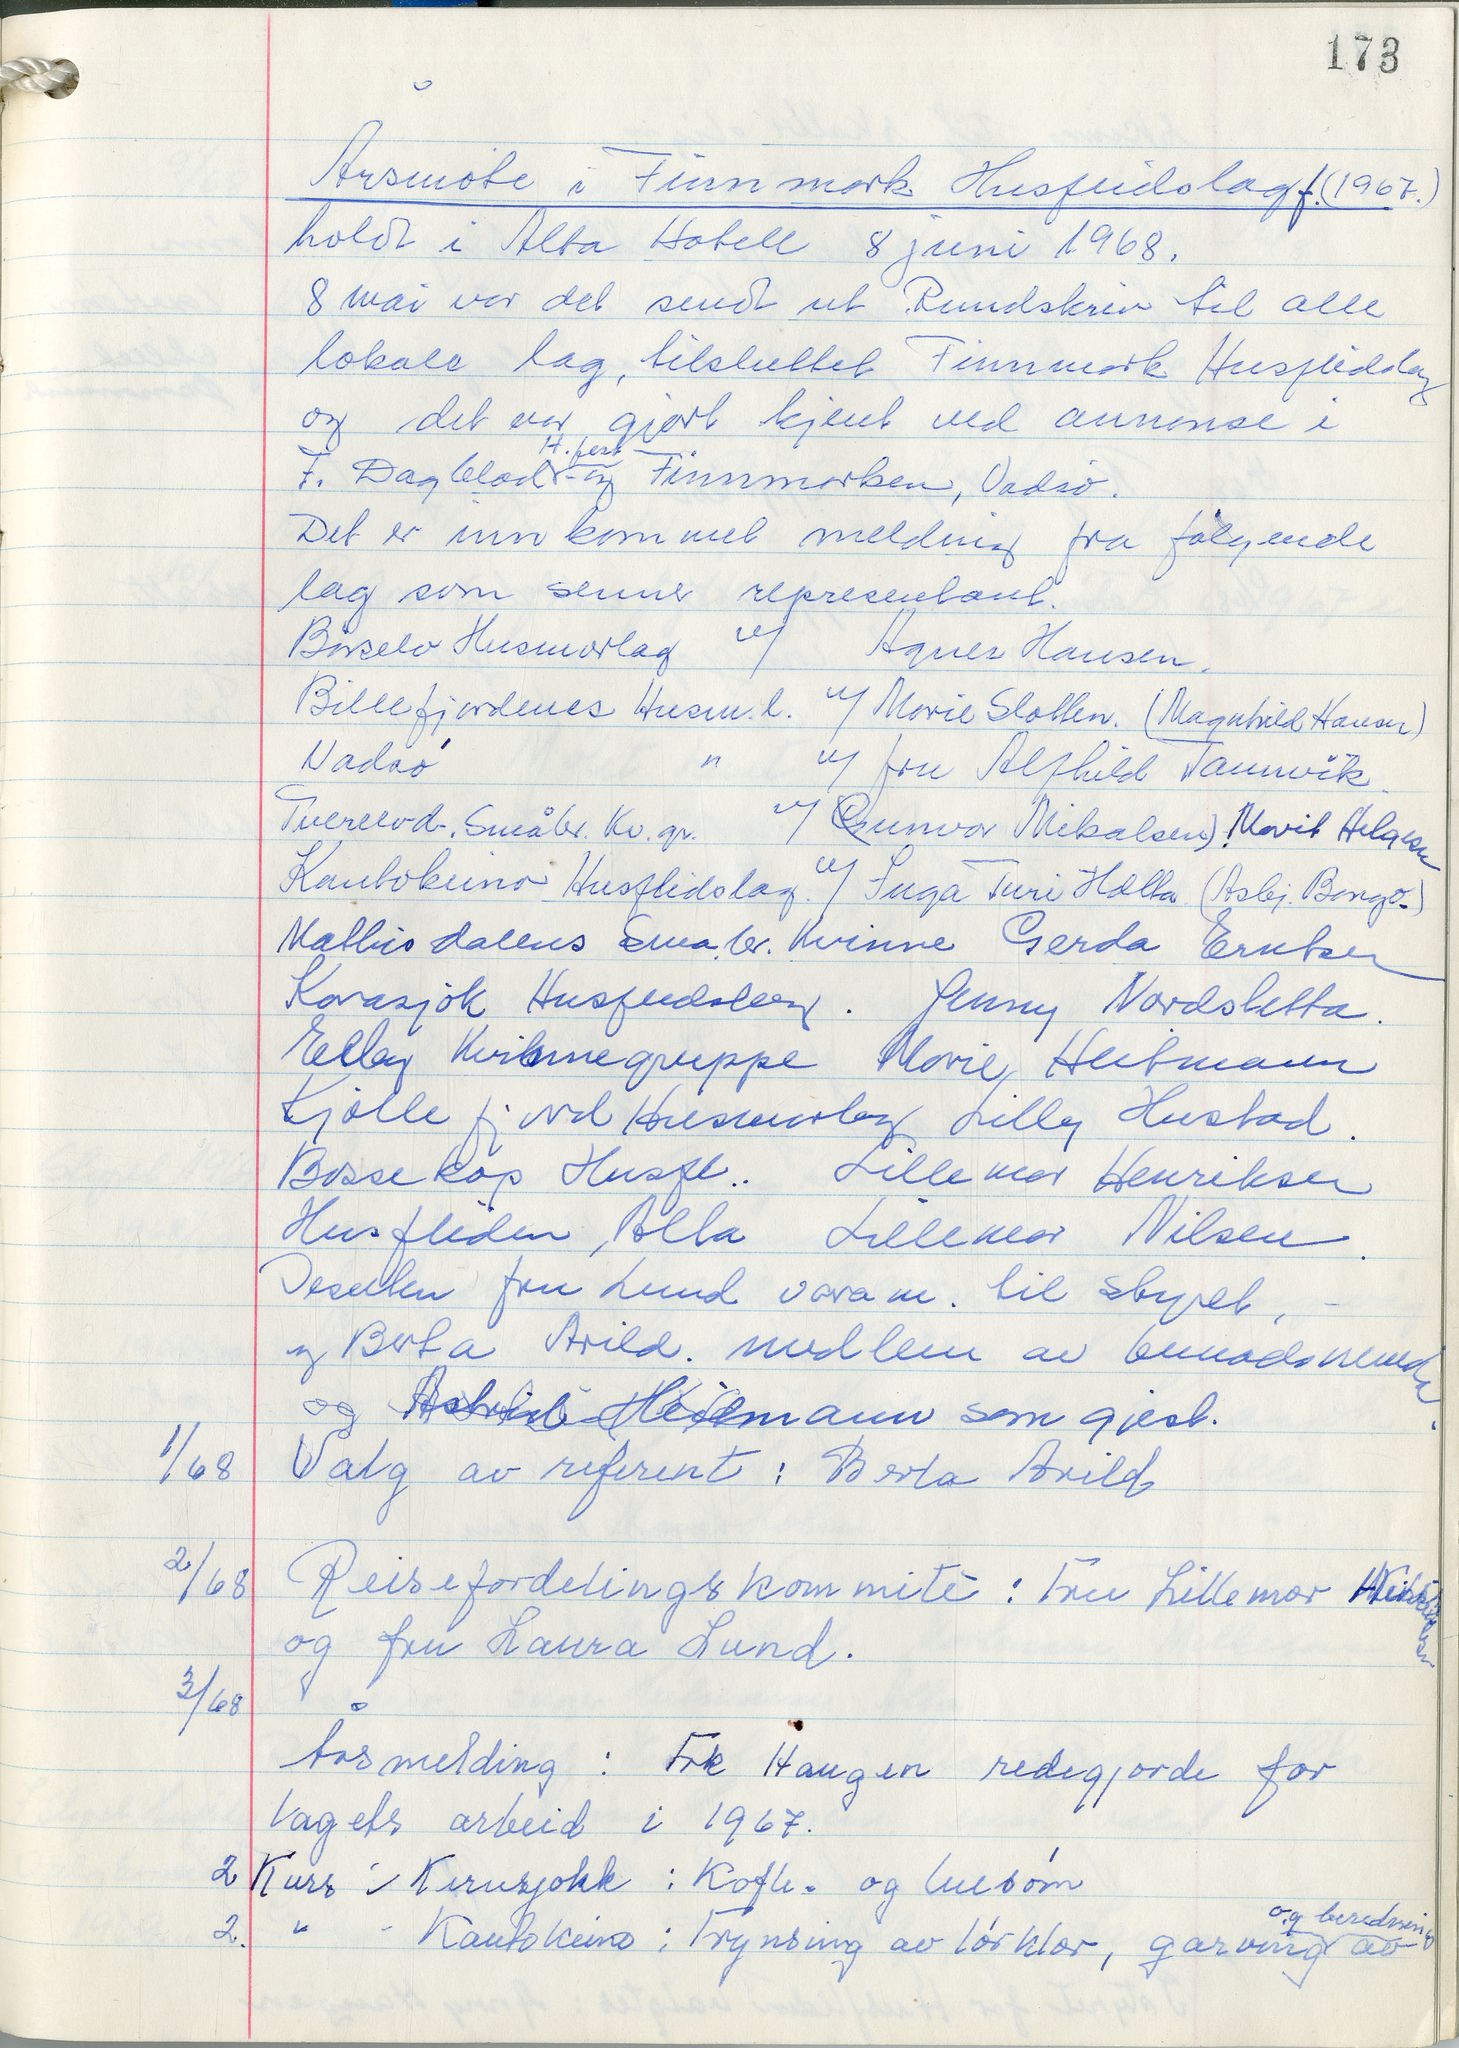 173
Årsmøte i Finnmark Husflidslag f. (1967.)
holdt i Alta Hotell 8 juni 1968.
8 mai var det sendt ut Rundskriv til alle
lokale lag, tilsluttet Finnmark Husflidslag
og det var gjort kjent ved annonse i
F. Dagblad - H.fest - og Finnmarken, Vadsø.
Det er innkommet melding fra følgende
lag som senner representant.
Børselv Husmorlag v/ Agnes Hansen.
Billefjordenes Husm. l. v/ Marie Slotten. (Magnhild Hansen)
Vadsø " v/ fru Alfhild Tannvik.
Tverrelvd. Småbr. Kv. gr. v/ (Gunvor Mikalsen) Marit Helgesen
Kautokeino Husflidslag v/ Inga Turi Hætta (Asbj. Bongo.)
Mathisdalens Småbr. Kvinne Gerda Erntsen
Karasjok Husflidslag. Jenny Nordsletta.
Elby Kvinnegruppe Marie Heitmann
Kjøllefjord Husmorlag Lilly Hustad.
Bossekop Husfl.. Lillemor Henriksen
Husfliden, Alta Lillemor Nilsen.
Desuten fru Lund varam. til styret, -
og Berta Arild. medlem av bunadsnemda.
og Astrid Heitmann som gjest.
1/68 Valg av referent: Berta Arild
2/68 Reisefordelingskommité: Fru Lillemor
og fru Laura Lund.
3/68
Årsmelding: Frk Haugen redegjorde for
lagets arbeid i 1967.
2 Kurs i Karasjokk: Kofte- og luesøm
2. " - Kautokeino: Frynsing av tørklær, garving og beredning av